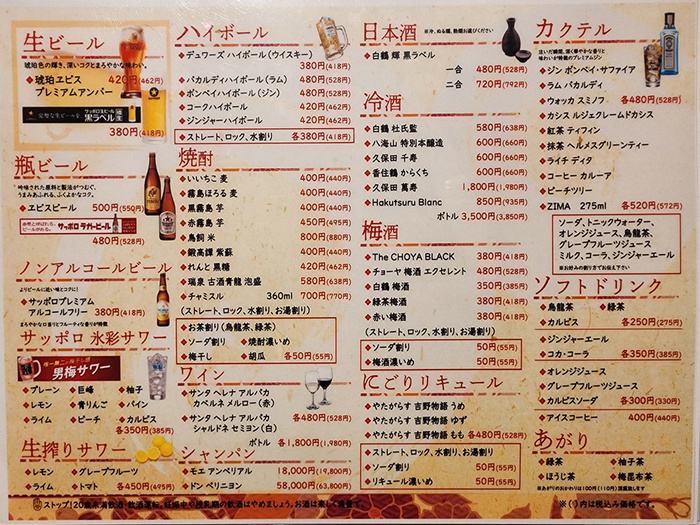 生ビール
琥珀色の輝き、深いコクとまろやかな味わい。
❖琥珀ヱビス 420円(462円)
プレミアムアンバー
完璧な生ビールを。
サッポロ生ビール
黒ラベル
380円(418円)
瓶ビール
吟味された原料と製法がつむぐ、
うまみあふれる、ふくよかなコク。
❖ヱビスビール 500円(550円)
サッポロ ラガービール
480円(528円)
ノンアルコールビール
よりビールに近い味とコクに!
❖サッポロプレミアム
アルコールフリー 380円(418円)
サッポロ 氷彩サワー
男梅サワー
❖プレーン ❖巨峰 ❖柚子
❖レモン ❖青りんご ❖パイン
❖ライム ❖ピーチ ❖カルピス
各350円(385円)
生搾りサワー
❖レモン ❖グレープフルーツ
❖ライム ❖トマト 各450円(495円)
ハイボール
❖デュワーズ ハイボール(ウイスキー)
380円(418円)
❖バカルディハイボール(ラム) 480円(528円)
❖ボンベイハイボール(ジン) 480円(528円)
❖コークハイボール 420円(462円)
❖ジンジャーハイボール 420円(462円)
❖ストレート、ロック、水割り 各380円(418円)
焼酎
❖いいちこ 麦 400円(440円)
❖霧島ほろる 麦 400円(440円)
❖黒霧島 芋 400円(440円)
❖赤霧島 芋 450円(495円)
❖鳥飼 米 800円(880円)
❖鍛高譚 紫蘇 400円(440円)
❖れんと 黒糖 420円(462円)
❖瑞泉 古酒青龍 泡盛 580円(638円)
❖チャミスル 360ml 700円(770円)
(ストレート、ロック、水割り、お湯割り)
❖お茶割り(烏龍茶、緑茶)
❖ソーダ割り ❖焼酎濃いめ
❖梅干し ❖胡瓜 各50円(55円)
ワイン
❖サンタ ヘレナ アルパカ
カベルネ メルロー(赤)
❖サンタ ヘレナ アルパカ 各480円(528円)
シャルドネ セミヨン(白)
ボトル 各1,800円(1,980円)
シャンパン
❖モエ アンペリアル 18,000円(19,800円)
❖ドン ペリニヨン 58,000円(63,800円)
日本酒
※冷、ぬる燗、熱燗お選びください
❖白鶴 輝 黒ラベル
一合 480円(528円)
二合 720円(792円)
冷酒
❖白鶴 杜氏鑑 580円(638円)
❖八海山 特別本醸造 600円(660円)
❖久保田 千寿 600円(660円)
❖香住鶴 からくち 600円(660円)
❖久保田 萬寿 1,800円(1,980円)
❖Hakutsuru Blanc 850円(935円)
ボトル 3,500円(3,850円)
梅酒
❖The CHOYA BLACK 380円(418円)
❖チョーヤ 梅酒 エクセレント 480円(528円)
❖白鶴 梅酒 350円(385円)
❖緑茶梅酒 380円(418円)
❖赤い梅酒 380円(418円)
(ストレート、ロック、水割り、お湯割り)
❖ソーダ割り 50円(55円)
❖梅酒濃いめ 50円(55円)
にごりリキュール
❖やたがらす 吉野物語 うめ
❖やたがらす 吉野物語 ゆず
❖やたがらす 吉野物語 もも 各480円(528円)
❖ストレート、ロック、水割り、お湯割り
❖ソーダ割り 50円(55円)
❖リキュール濃いめ 50円(55円)
カクテル
注いだ瞬間、深く華やかな香りと
味わいが特徴のプレミアムジン
❖ジン ボンベイ・サファイア
❖ラム バカルディ
❖ウォッカ スミノフ 各480円(528円)
❖カシス ルジェクレームドカシス
❖紅茶 ティフィン
❖抹茶 ヘルメスグリーンティー
❖ライチ ディタ
❖コーヒー カルーア
❖ピーチツリー
❖ZIMA 275ml 各520円(572円)
ソーダ、トニックウォーター、
オレンジジュース、烏龍茶、
グレープフルーツジュース
ミルク、コーラ、ジンジャーエール
※お好みの割り方でお伝え下さい
ソフトドリンク
❖烏龍茶 ❖緑茶
❖カルピス 各250円(275円)
❖ジンジャーエール
❖コカ・コーラ 各350円(385円)
❖オレンジジュース
❖グレープフルーツジュース
❖カルピスソーダ 各300円(330円)
❖アイスコーヒー 400円(440円)
あがり
❖緑茶 ❖柚子茶
❖ほうじ茶 ❖梅昆布茶
※あがりのおかわりは100円(110円)頂戴致します
ストップ!20歳未満飲酒・飲酒運転。妊娠中や授乳期の飲酒はやめましょう。お酒は楽しく適量で。
※( )内は税込み価格です。